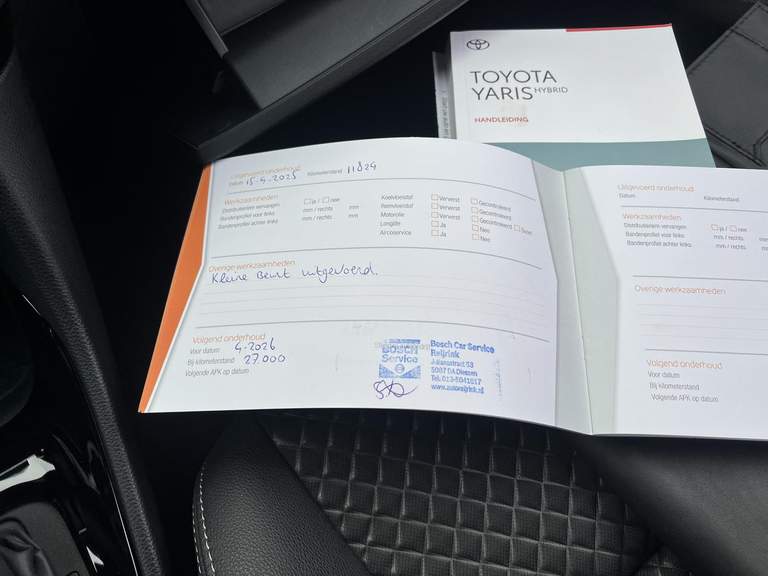 TOYOTA
YARIS HYBRID
HANDLEIDING
Uitgevoerd onderhoud
Datum 15-4-2025 Kilometerstand 11824
Werkzaamheden
Distributieriem vervangen ja / nee
Bandenprofiel voor links mm / rechts mm
Bandenprofiel achter links mm / rechts mm
Koelvloeistof Ververst Gecontroleerd
Remvloeistof Ververst Gecontroleerd
Motorolie Ververst Gecontroleerd
Longlife Ja Nee
Aircoservice Ja Nee
Overige werkzaamheden
Kleine Beurt uitgevoerd.
Volgend onderhoud
Voor datum 4-2026
Bij kilometerstand 27.000
Volgende APK op datum
BOSCH
Service
Bosch Car Service
Reijrink
Julianastraat 53
5087 BA Diessen
Tel. 013-5041617
www.autoreijrink.nl
Uitgevoerd onderhoud
Datum Kilometerstand
Werkzaamheden
Distributieriem vervangen ja /
Bandenprofiel voor links mm / rechts
Bandenprofiel achter links mm / rechts
Overige werkzaamheden
Volgend onderhoud
Voor datum
Bij kilometerstand
Volgende APK op datum